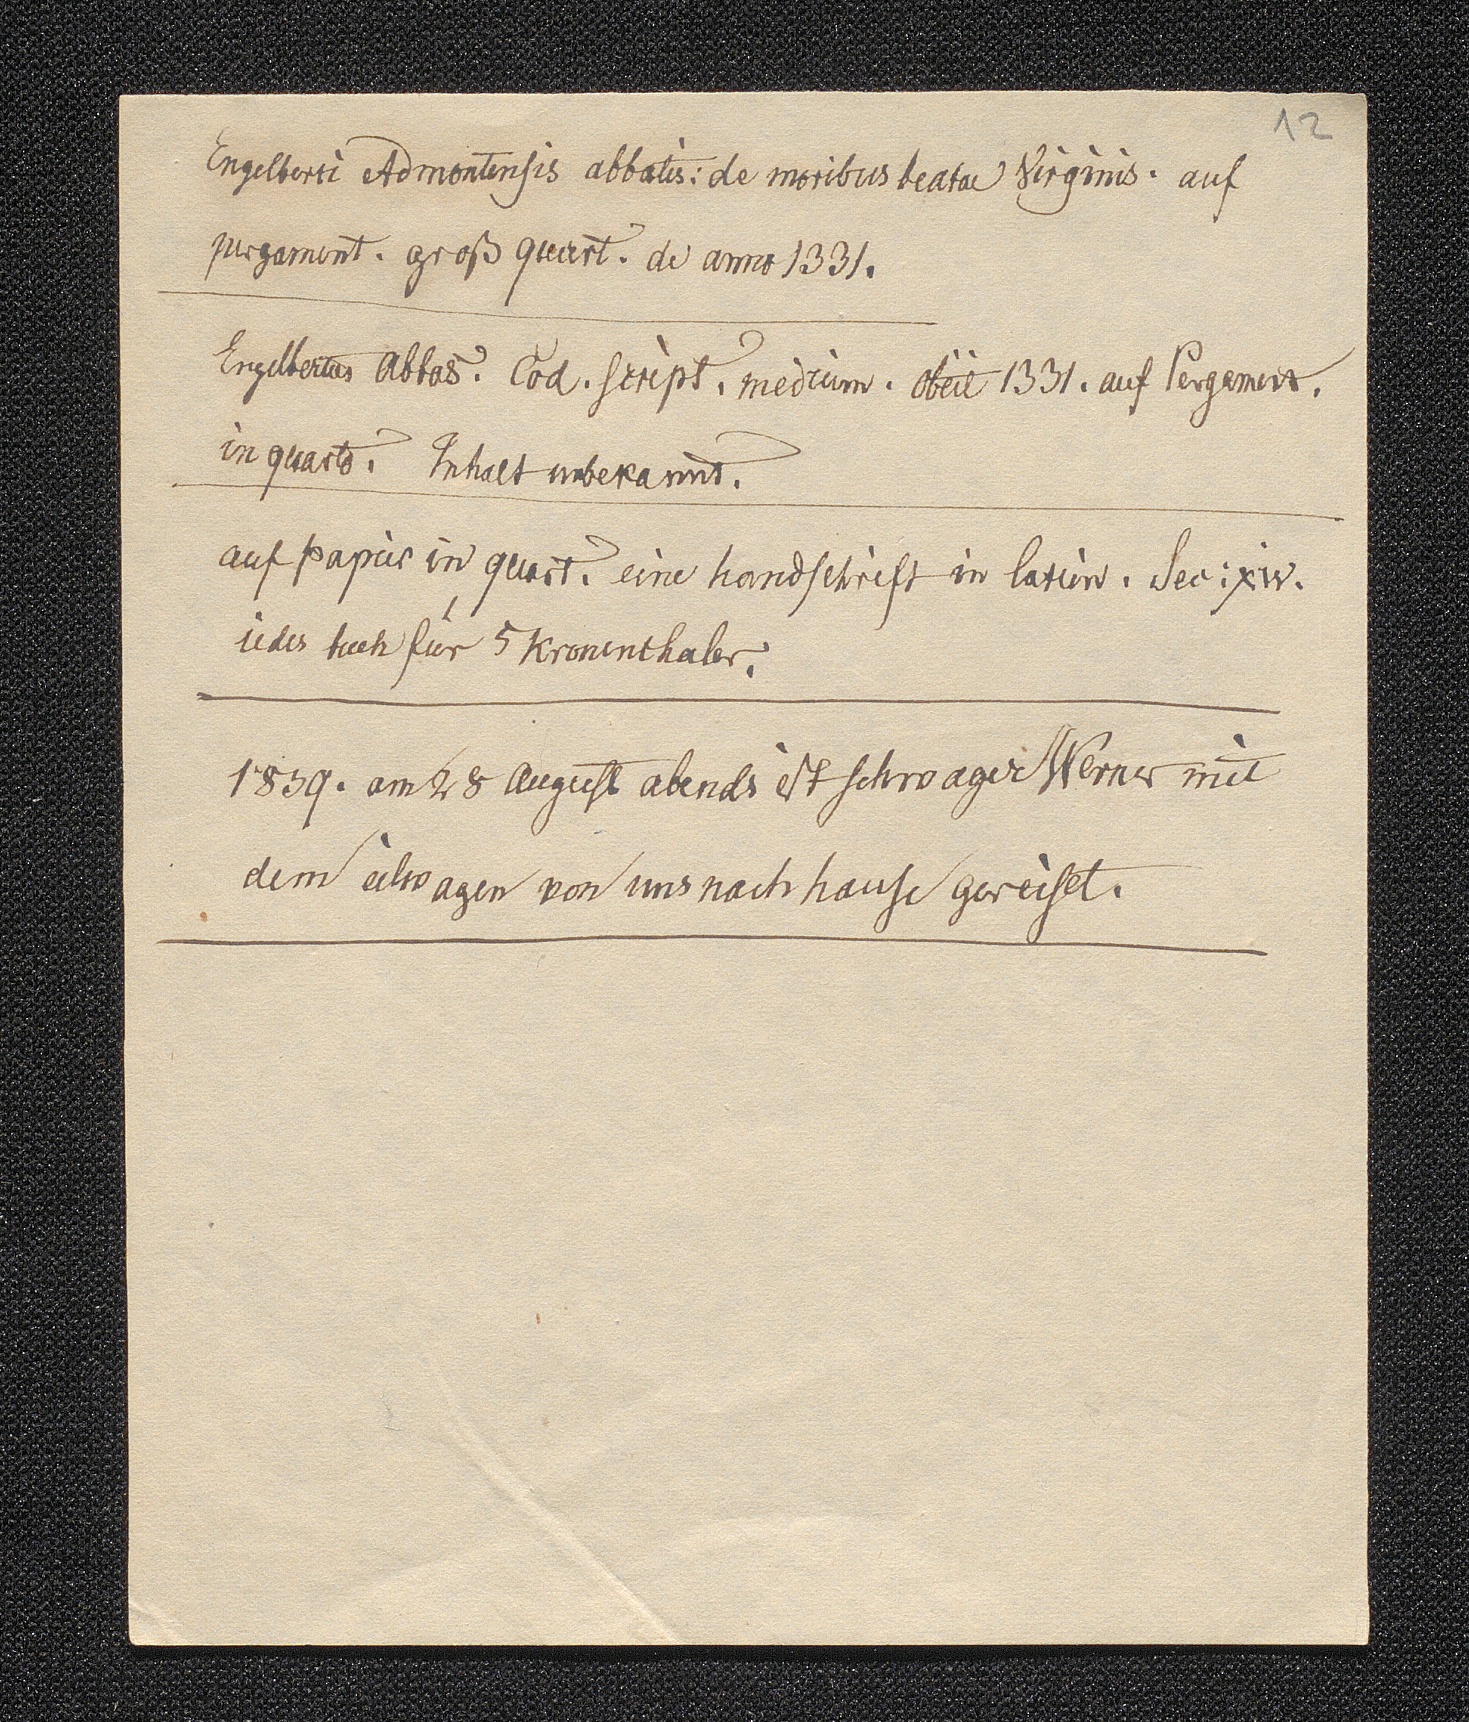 12
Engelberti Admontensis abbatis: de moribus beatae Virginis. auf
pergament. groß quart. de anno 1331.
Engelbertus Abbas. Cod. script. medium. obiit 1331. auf Pergament.
in quarto. Inhalt unbekannt.
auf papier in quart. eine handschrift in latein. Sec: xiv.
iedes buch für 5 Kronenthaler.
1839. am 28 August abends ist schwager Werner mit
dem eilwagen von uns nach hause gereiset.